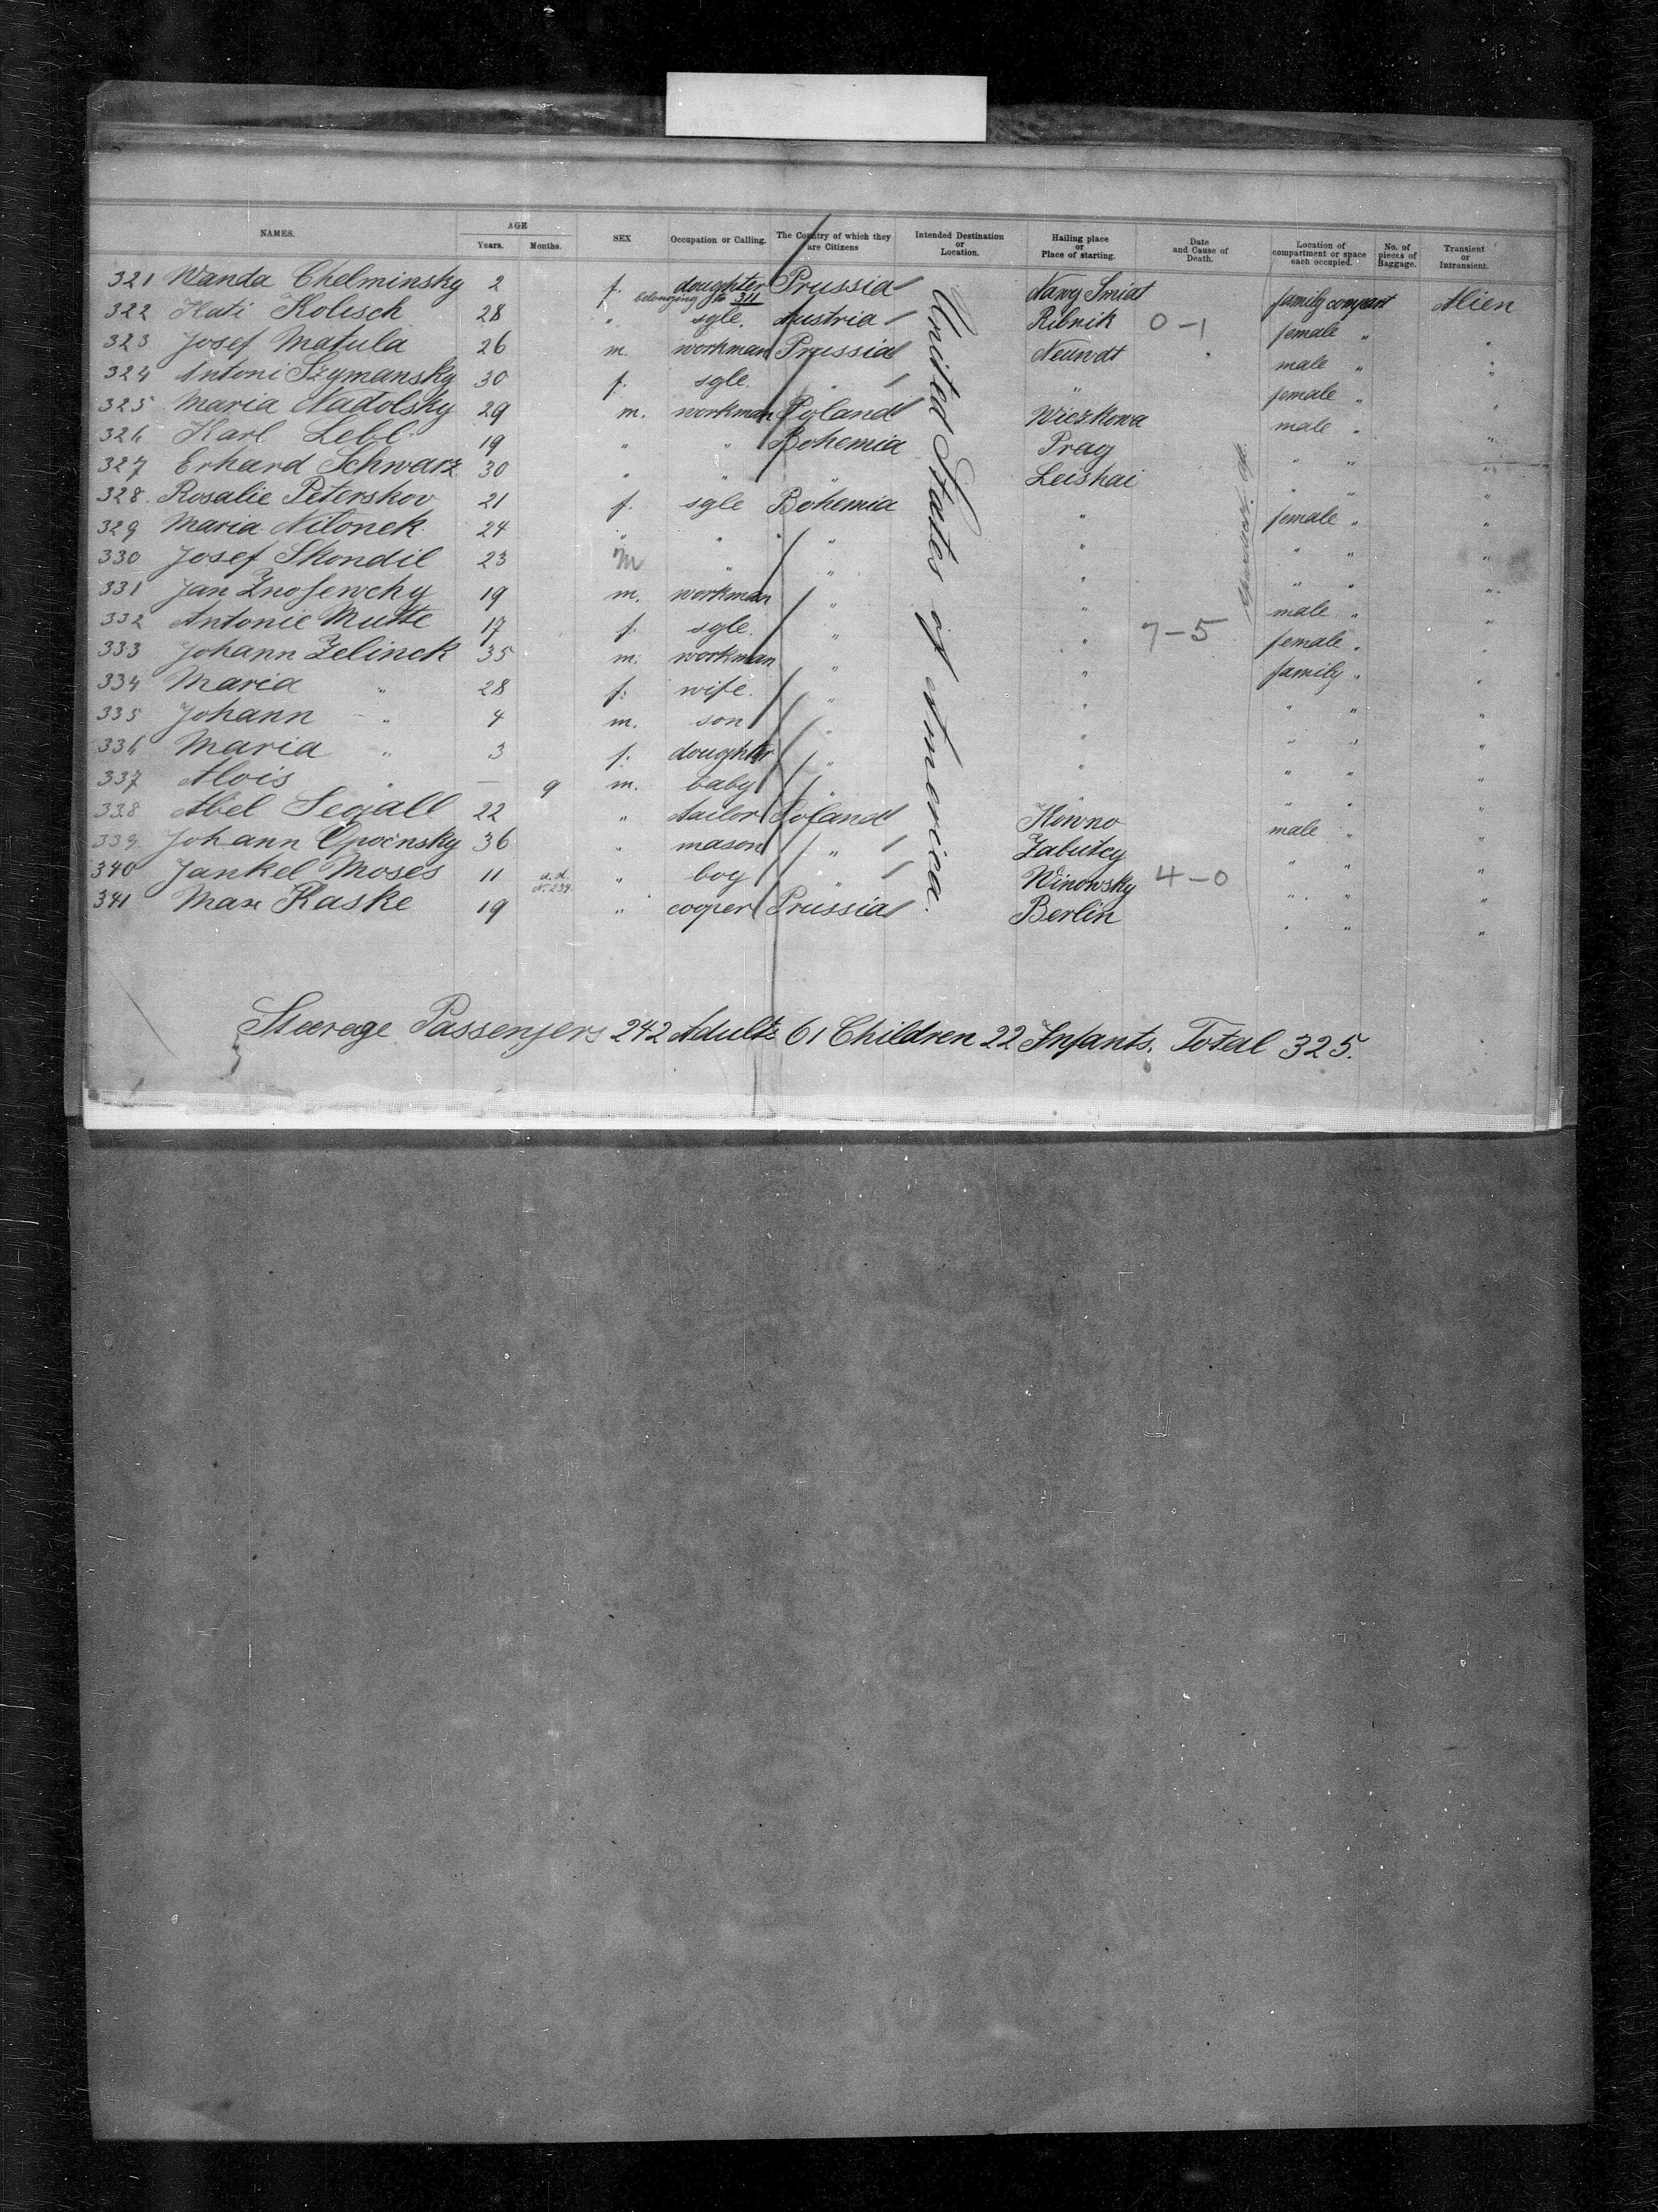 NAMES. AGE Years. Months. SEX Occupation or Calling. The Country of which they are Citizens Intended Destination or Location. Hailing place or Place of starting. Date and Cause of Death. Location of compartment or space each occupied. No. of pieces of Baggage. Transient or Intransient.
321 Wanda Chelminsky 2 f. doughter Prussia Nawy Smiat family compart Alien
belonging to 311
322 Kati Kolisch 28 " sgle. Austria Ribnik 0-1 female " "
323 Josef Matula 26 m. workman Prussia Neuwdt male " "
324 Antoni Szymansky 30 f. sgle. " " female " "
325 Maria Nadolsky 29 m. workman Poland Wiezkowa male " "
326 Karl Lebl 19 " " Bohemia Prag " " "
327 Erhard Schwarz 30 " " " Leishai " " "
328. Rosalie Peterskov 21 f. sgle Bohemia " female " "
329 Maria Nitonek 24 " " " " " " "
330 Josef Skondil 23 m " " " " " "
331 Jan Znosewchy 19 m. workman " " male " "
332 Antonie Mutte 17 f. sgle. " " 7-5 female " "
333 Johann Zelinek 35 m. workman " " family " "
334 Maria " 28 f. wife. " " " " "
335 Johann " 4 m. son " " " " "
336 Maria " 3 f. doughter " " " " "
337 Alois " — 9 m. baby " " " "
338 Abel Segall 22 " tailor Poland Kowno male " "
339. Johann Opocnsky 36 " mason " Zabutcy " " "
340 Jankel Moses 11 a.d. N. 234. " boy " Winowsky 4-0 " " "
341 Max Raske 19 " cooper Prussia Berlin " " "
United States of America.
Steerage Passenjers 242 Adults 61 Children 22 Infants. Total 325.